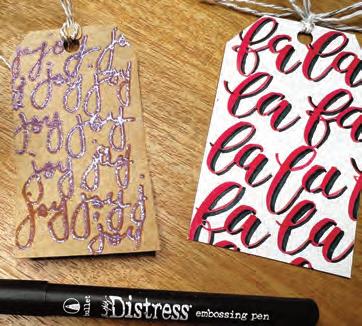 joy joy jo
joy joy
joy joy
joy joy
joy joy j
joy
fa la
la fa
la la
la la
la la
bullet Distress® embossing pen